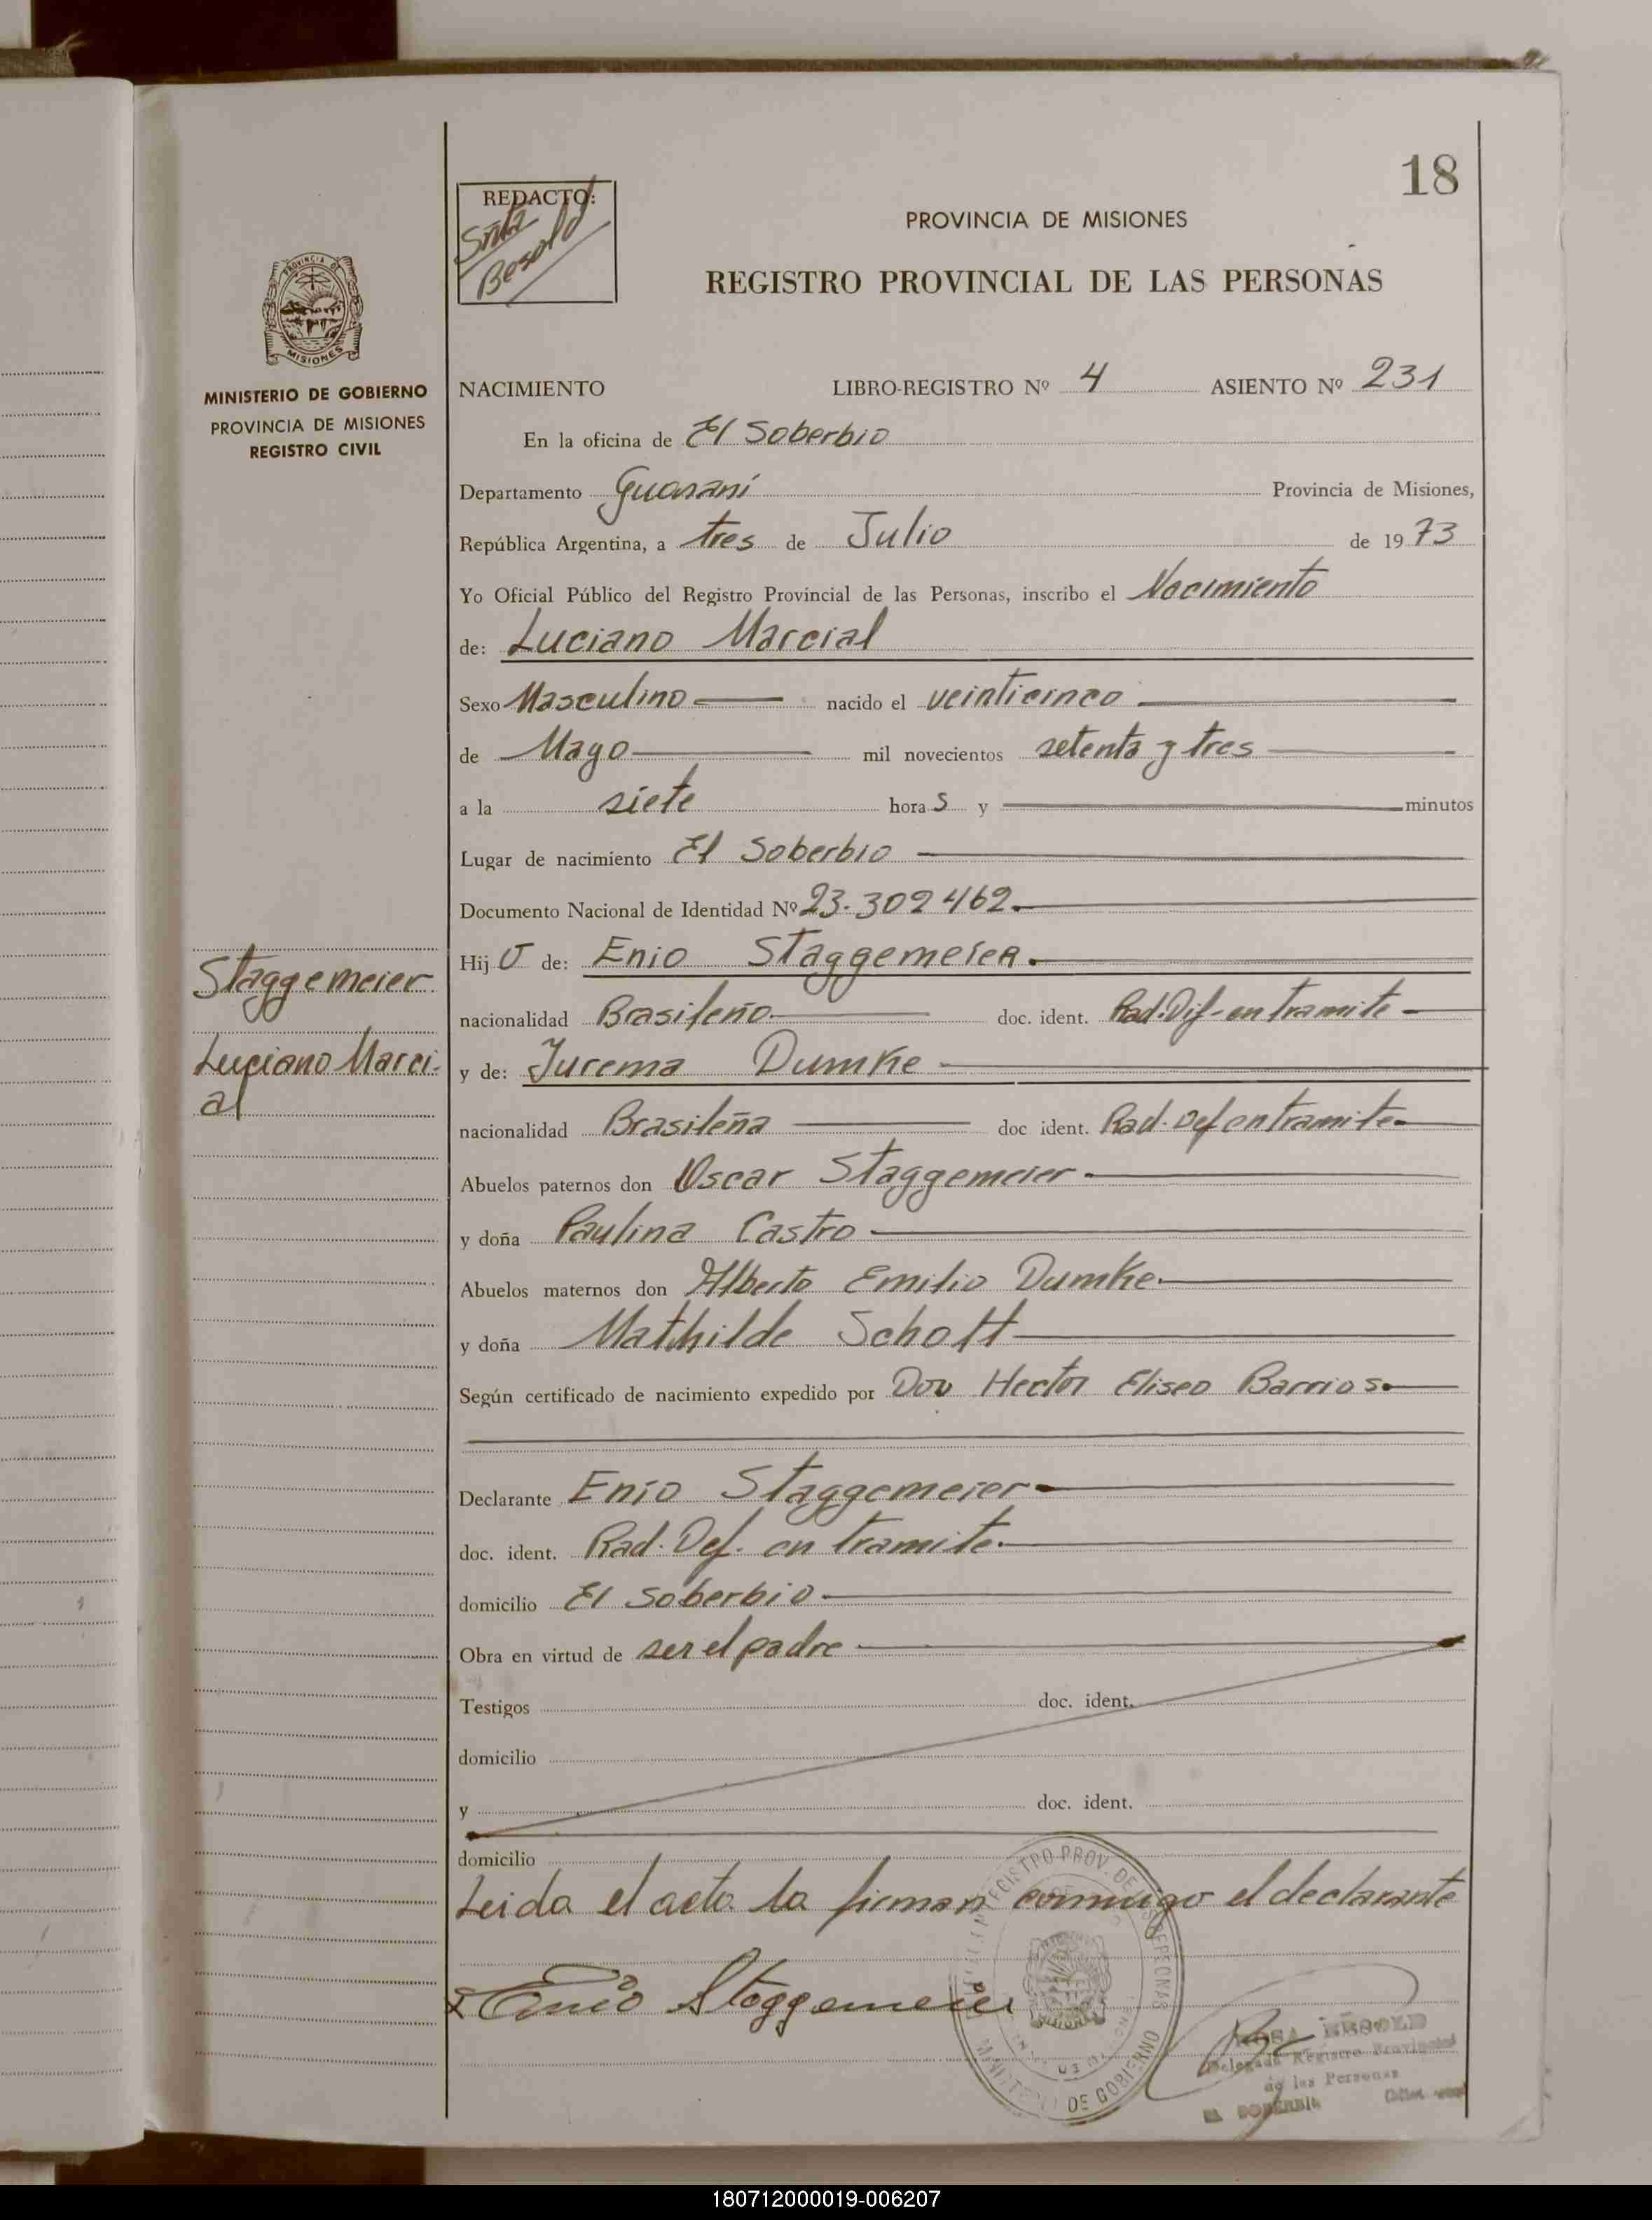 18
REDACTO:
Srita
Besold
PROVINCIA DE MISIONES
REGISTRO PROVINCIAL DE LAS PERSONAS
PROVINCIA DE
MISIONES
MINISTERIO DE GOBIERNO
PROVINCIA DE MISIONES
REGISTRO CIVIL
NACIMIENTO LIBRO-REGISTRO Nº 4 ASIENTO Nº 231
En la oficina de El Soberbio
Departamento Guaraní Provincia de Misiones,
República Argentina, a tres de Julio de 1973
Yo Oficial Público del Registro Provincial de las Personas, inscribo el Nacimiento
de: Luciano Marcial
Sexo Masculino nacido el veinticinco
de Mayo mil novecientos setenta y tres
a la siete horas y minutos
Lugar de nacimiento El Soberbio
Documento Nacional de Identidad Nº 23.302462.
Hijo de: Enio Staggemeier.
nacionalidad Brasileño. doc. ident. Rad. Def. en tramite
y de: Jurema Dumke
nacionalidad Brasileña doc ident. Rad. Def en tramite
Staggemeier.
Luciano Marci-
al
Abuelos paternos don Oscar Staggemeier
y doña Paulina Castro
Abuelos maternos don Alberto Emilio Dumke
y doña Mathilde Schott
Según certificado de nacimiento expedido por Don Hector Eliseo Barrios
Declarante Enio Staggemeier
doc. ident. Rad. Def. en tramite
domicilio El Soberbio
Obra en virtud de ser el padre
Testigos doc. ident.
domicilio
y doc. ident.
domicilio
Leida el acta la firman conmigo el declarante
Enio Staggemeier
REGISTRO PROV. DE LAS PERSONAS
MINISTERIO DE GOBIERNO
ROSA BESOLD
Delegada Registro Provincial
de las Personas
EL SOBERBIO
180712000019-006207